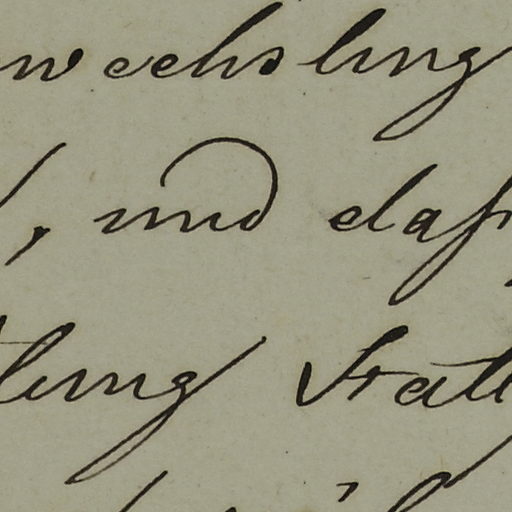 wechslung
, und daß
tlung statt